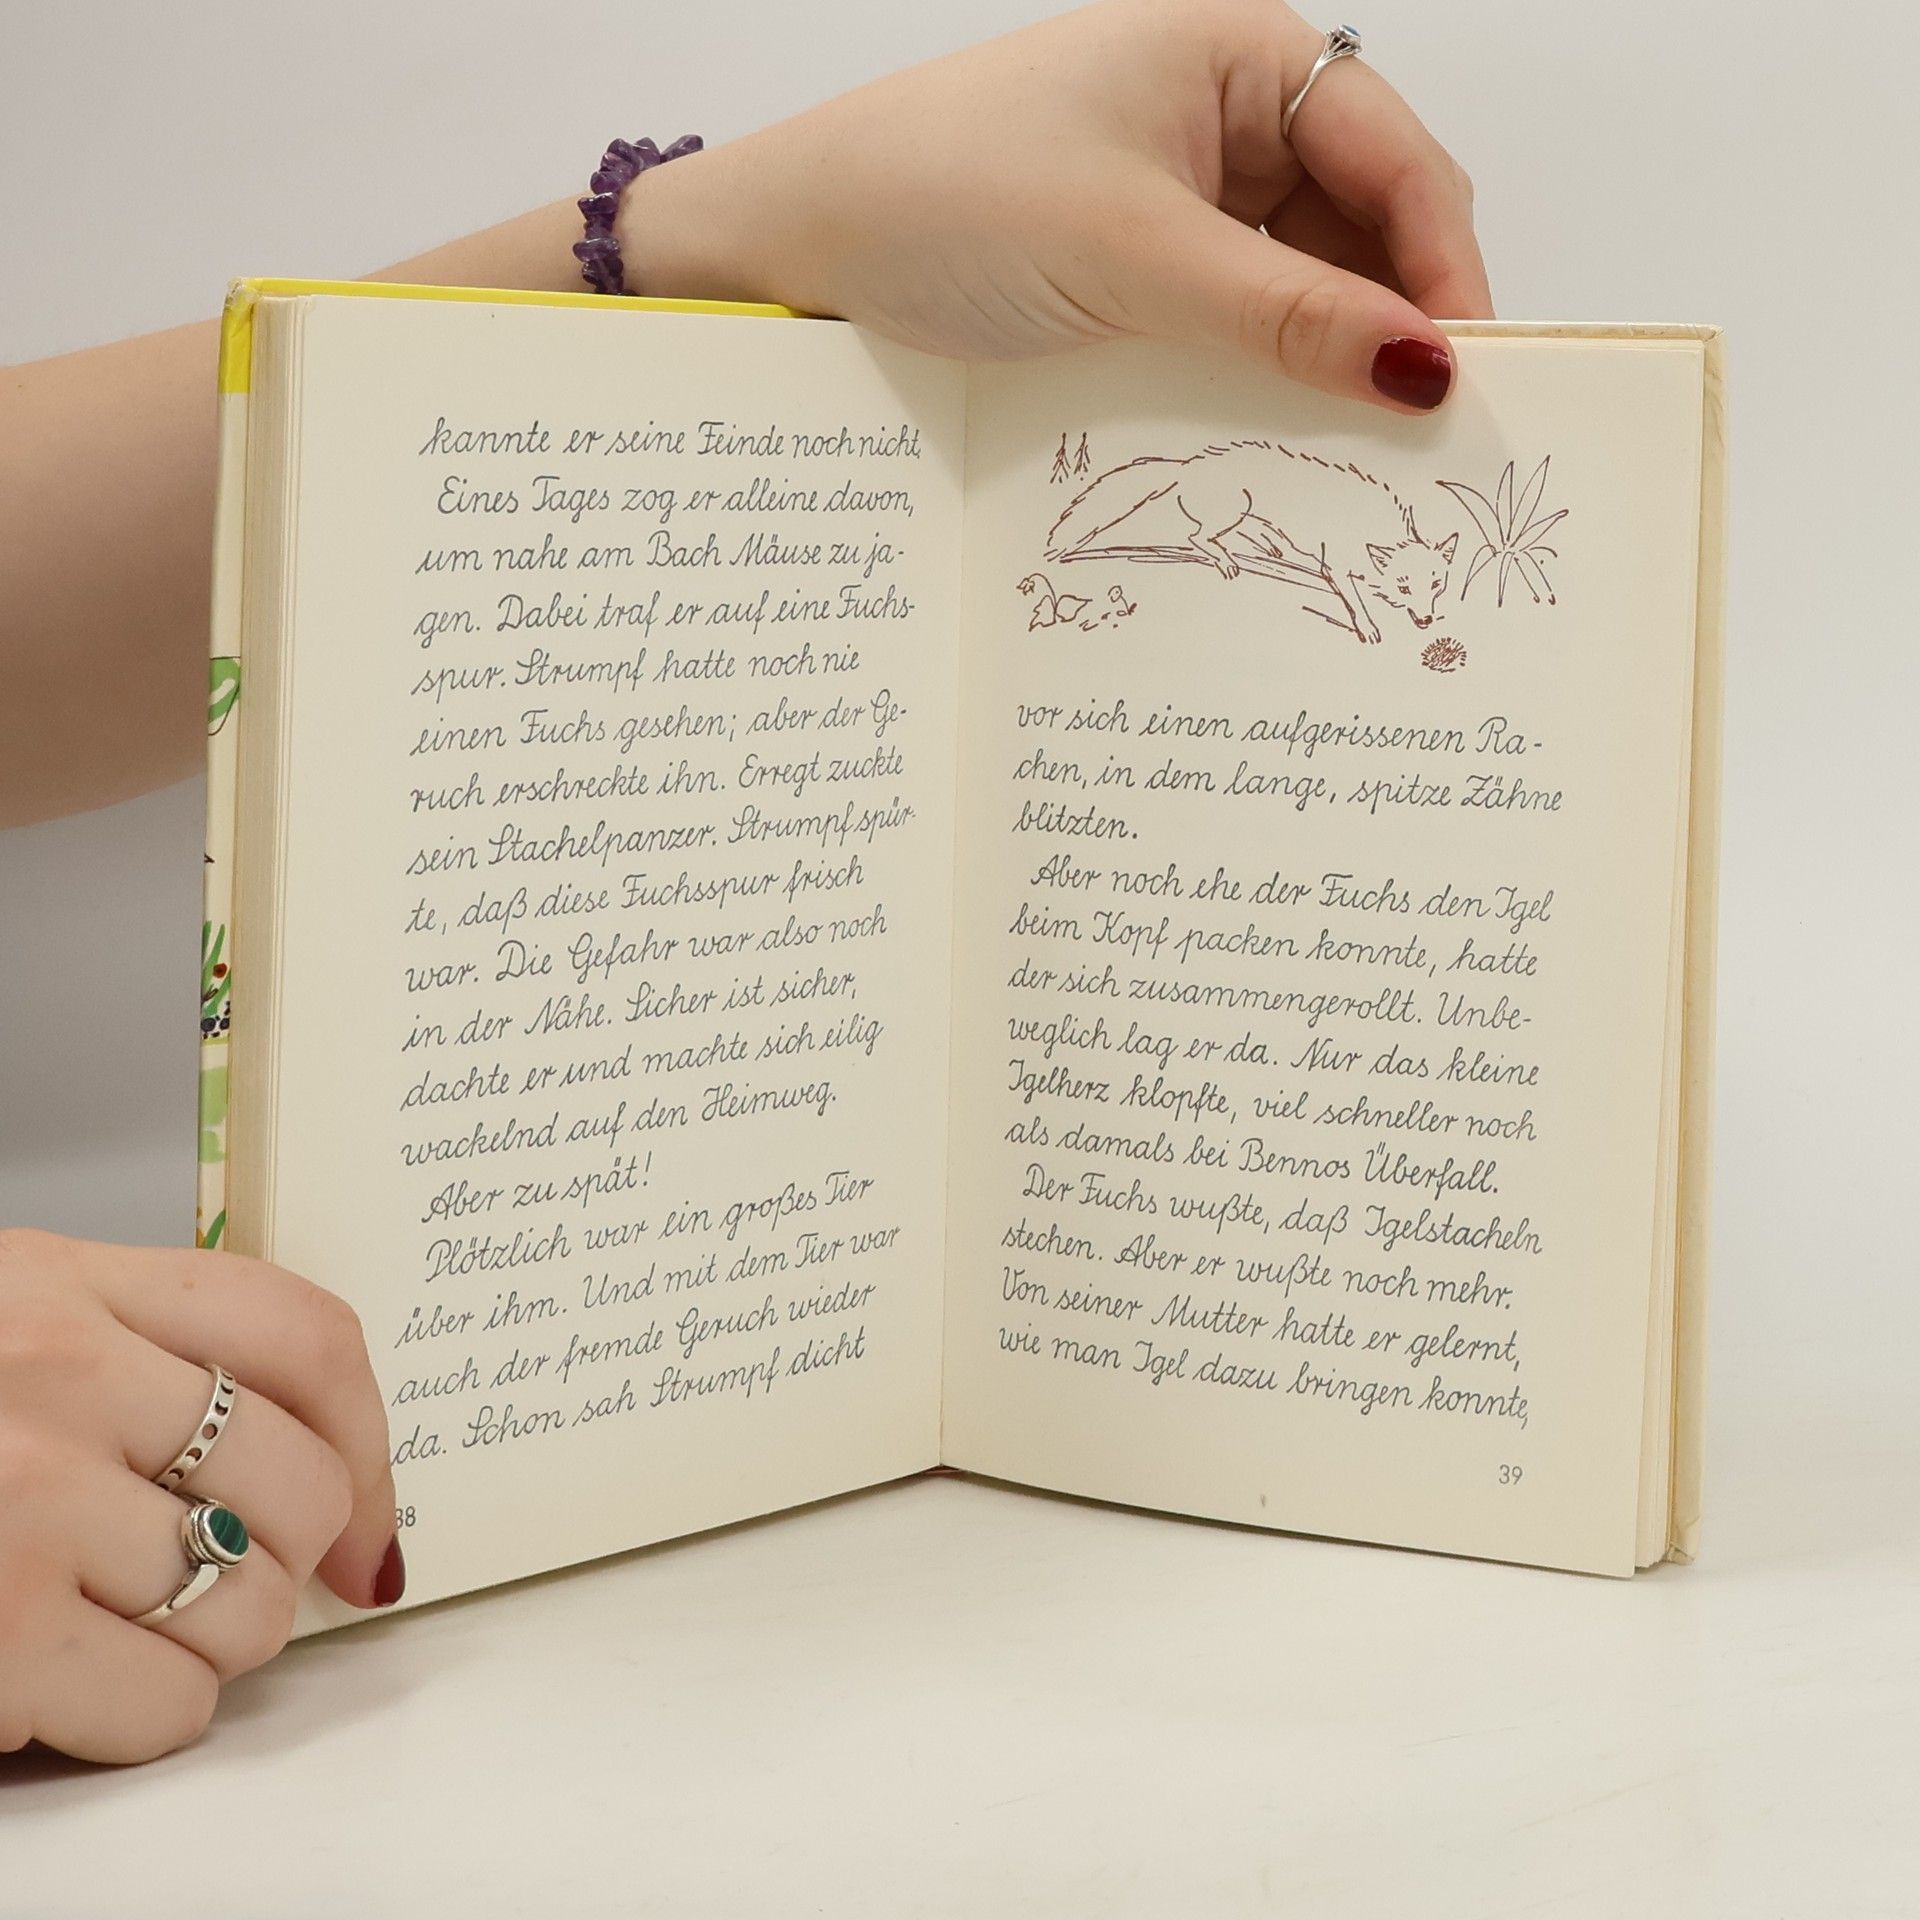 kannte er seine Feinde noch nicht.
Eines Tages zog er alleine davon,
um nahe am Bach Mäuse zu ja-
gen. Dabei traf er auf eine Fuchs-
spur. Strumpf hatte noch nie
einen Fuchs gesehen; aber der Ge-
ruch erschreckte ihn. Erregt zuckte
sein Stachelpanzer. Strumpf spür-
te, daß diese Fuchsspur frisch
war. Die Gefahr war also noch
in der Nähe. Sicher ist sicher,
dachte er und machte sich eilig
wackelnd auf den Heimweg.
Aber zu spät!
Plötzlich war ein großes Tier
über ihm. Und mit dem Tier war
auch der fremde Geruch wieder
da. Schon sah Strumpf dicht
38
vor sich einen aufgerissenen Ra-
chen, in dem lange, spitze Zähne
blitzten.
Aber noch ehe der Fuchs den Igel
beim Kopf packen konnte, hatte
der sich zusammengerollt. Unbe-
weglich lag er da. Nur das kleine
Igelherz klopfte, viel schneller noch
als damals bei Bennos Überfall.
Der Fuchs wußte, daß Igelstacheln
stechen. Aber er wußte noch mehr.
Von seiner Mutter hatte er gelernt,
wie man Igel dazu bringen konnte,
39